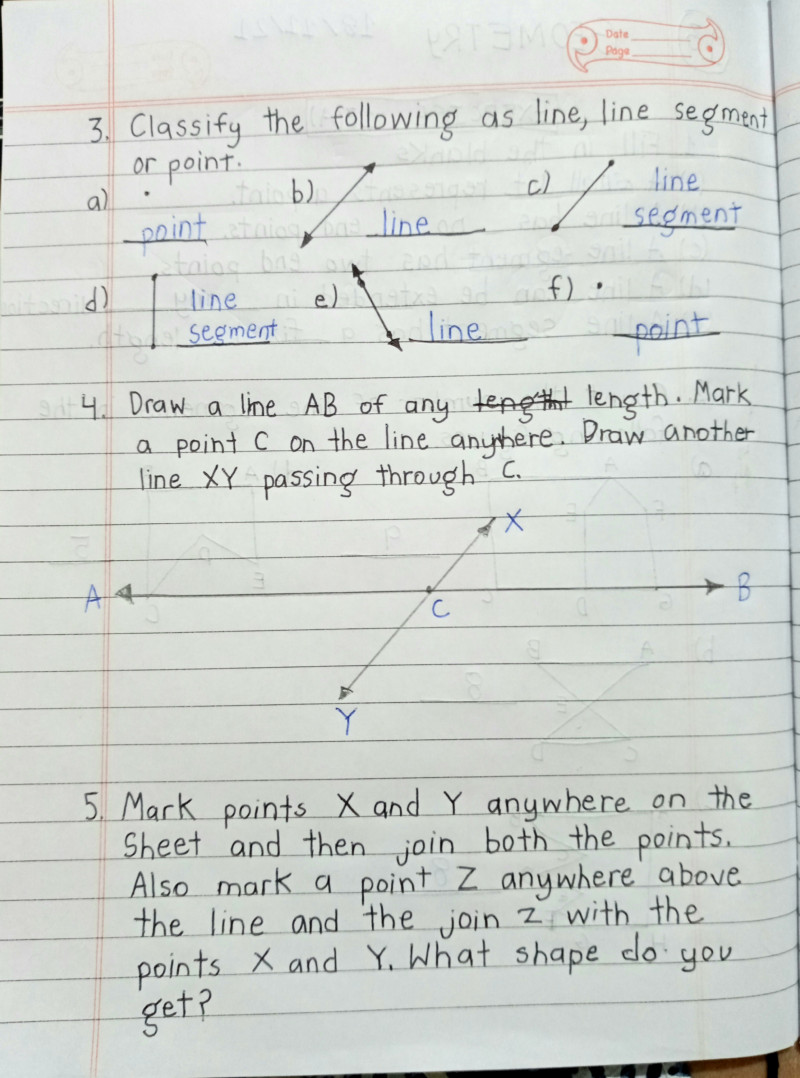 Date
Page
3. Classify the following as line, line segment
or point.
a) point b) line c) line
segment
d) line
segment e) line f) point
4. Draw a line AB of any length. Mark
a point C on the line anywhere. Draw another
line XY passing through C.
X
A B
C
Y
5. Mark points X and Y anywhere on the
Sheet and then join both the points.
Also mark a point Z anywhere above
the line and the join Z with the
points X and Y. What shape do you
get?